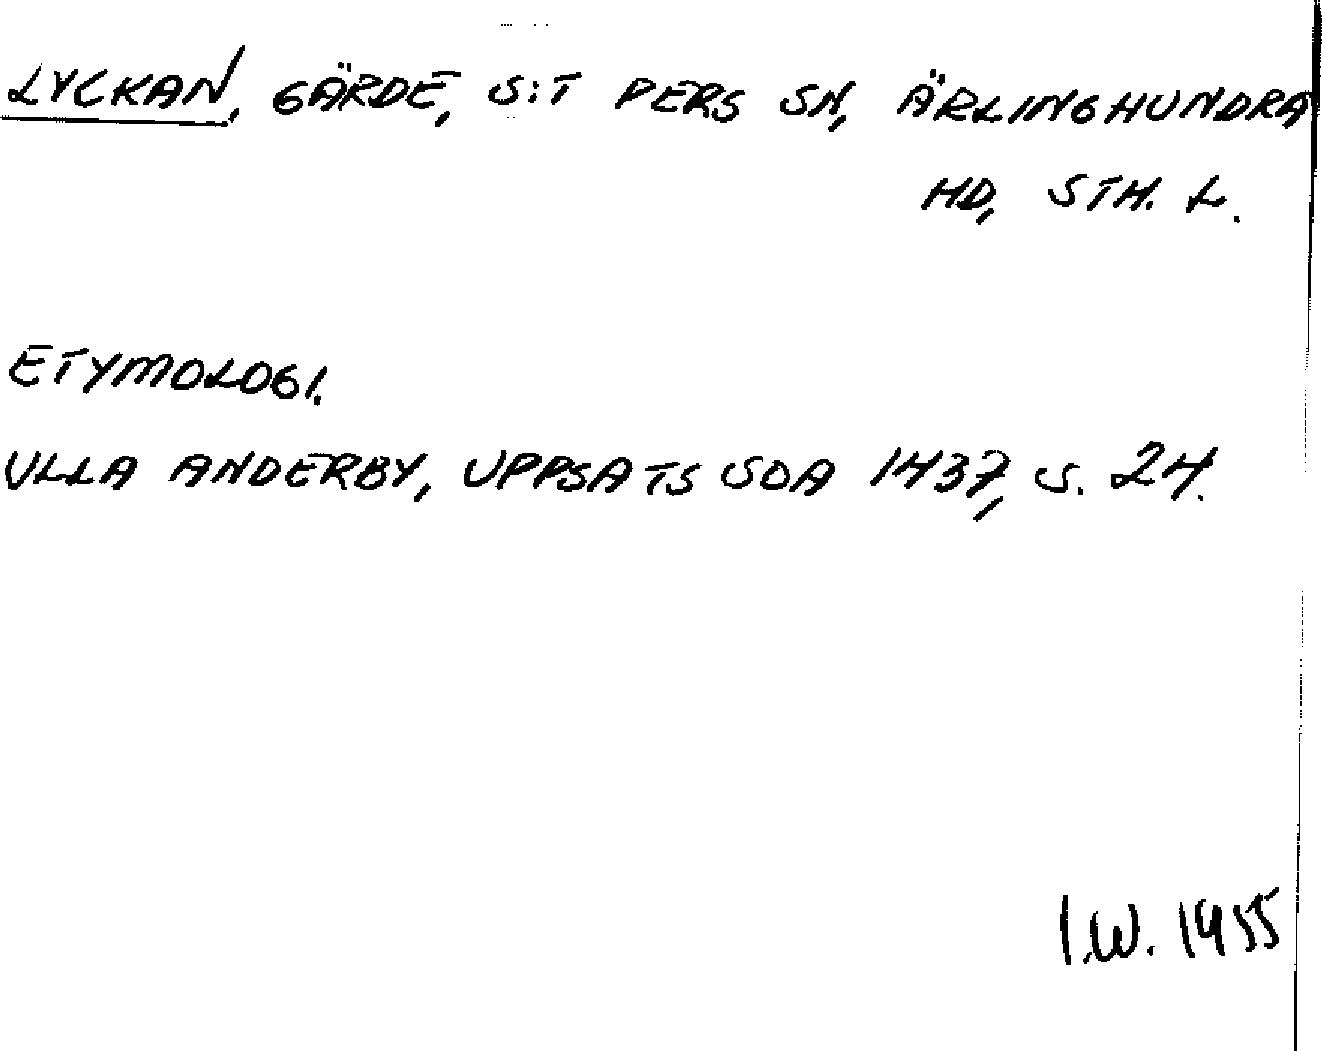 LYCKAN, GÄRDE, S:T PERS SN, ÄRLINGHUNDRA
HD, STH. L.
ETYMOLOGI.
ULLA ANDERBY, UPPSATS SOA 1437, S. 24.
I.W. 1955